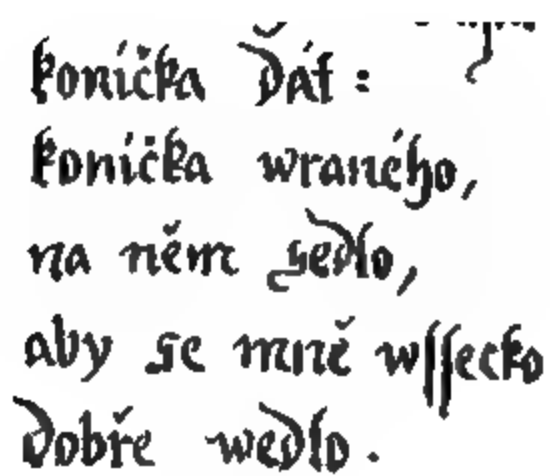 koníčka dát :
koníčka wraného,
na něm sedlo,
aby se mně wssecko
dobře wedlo.